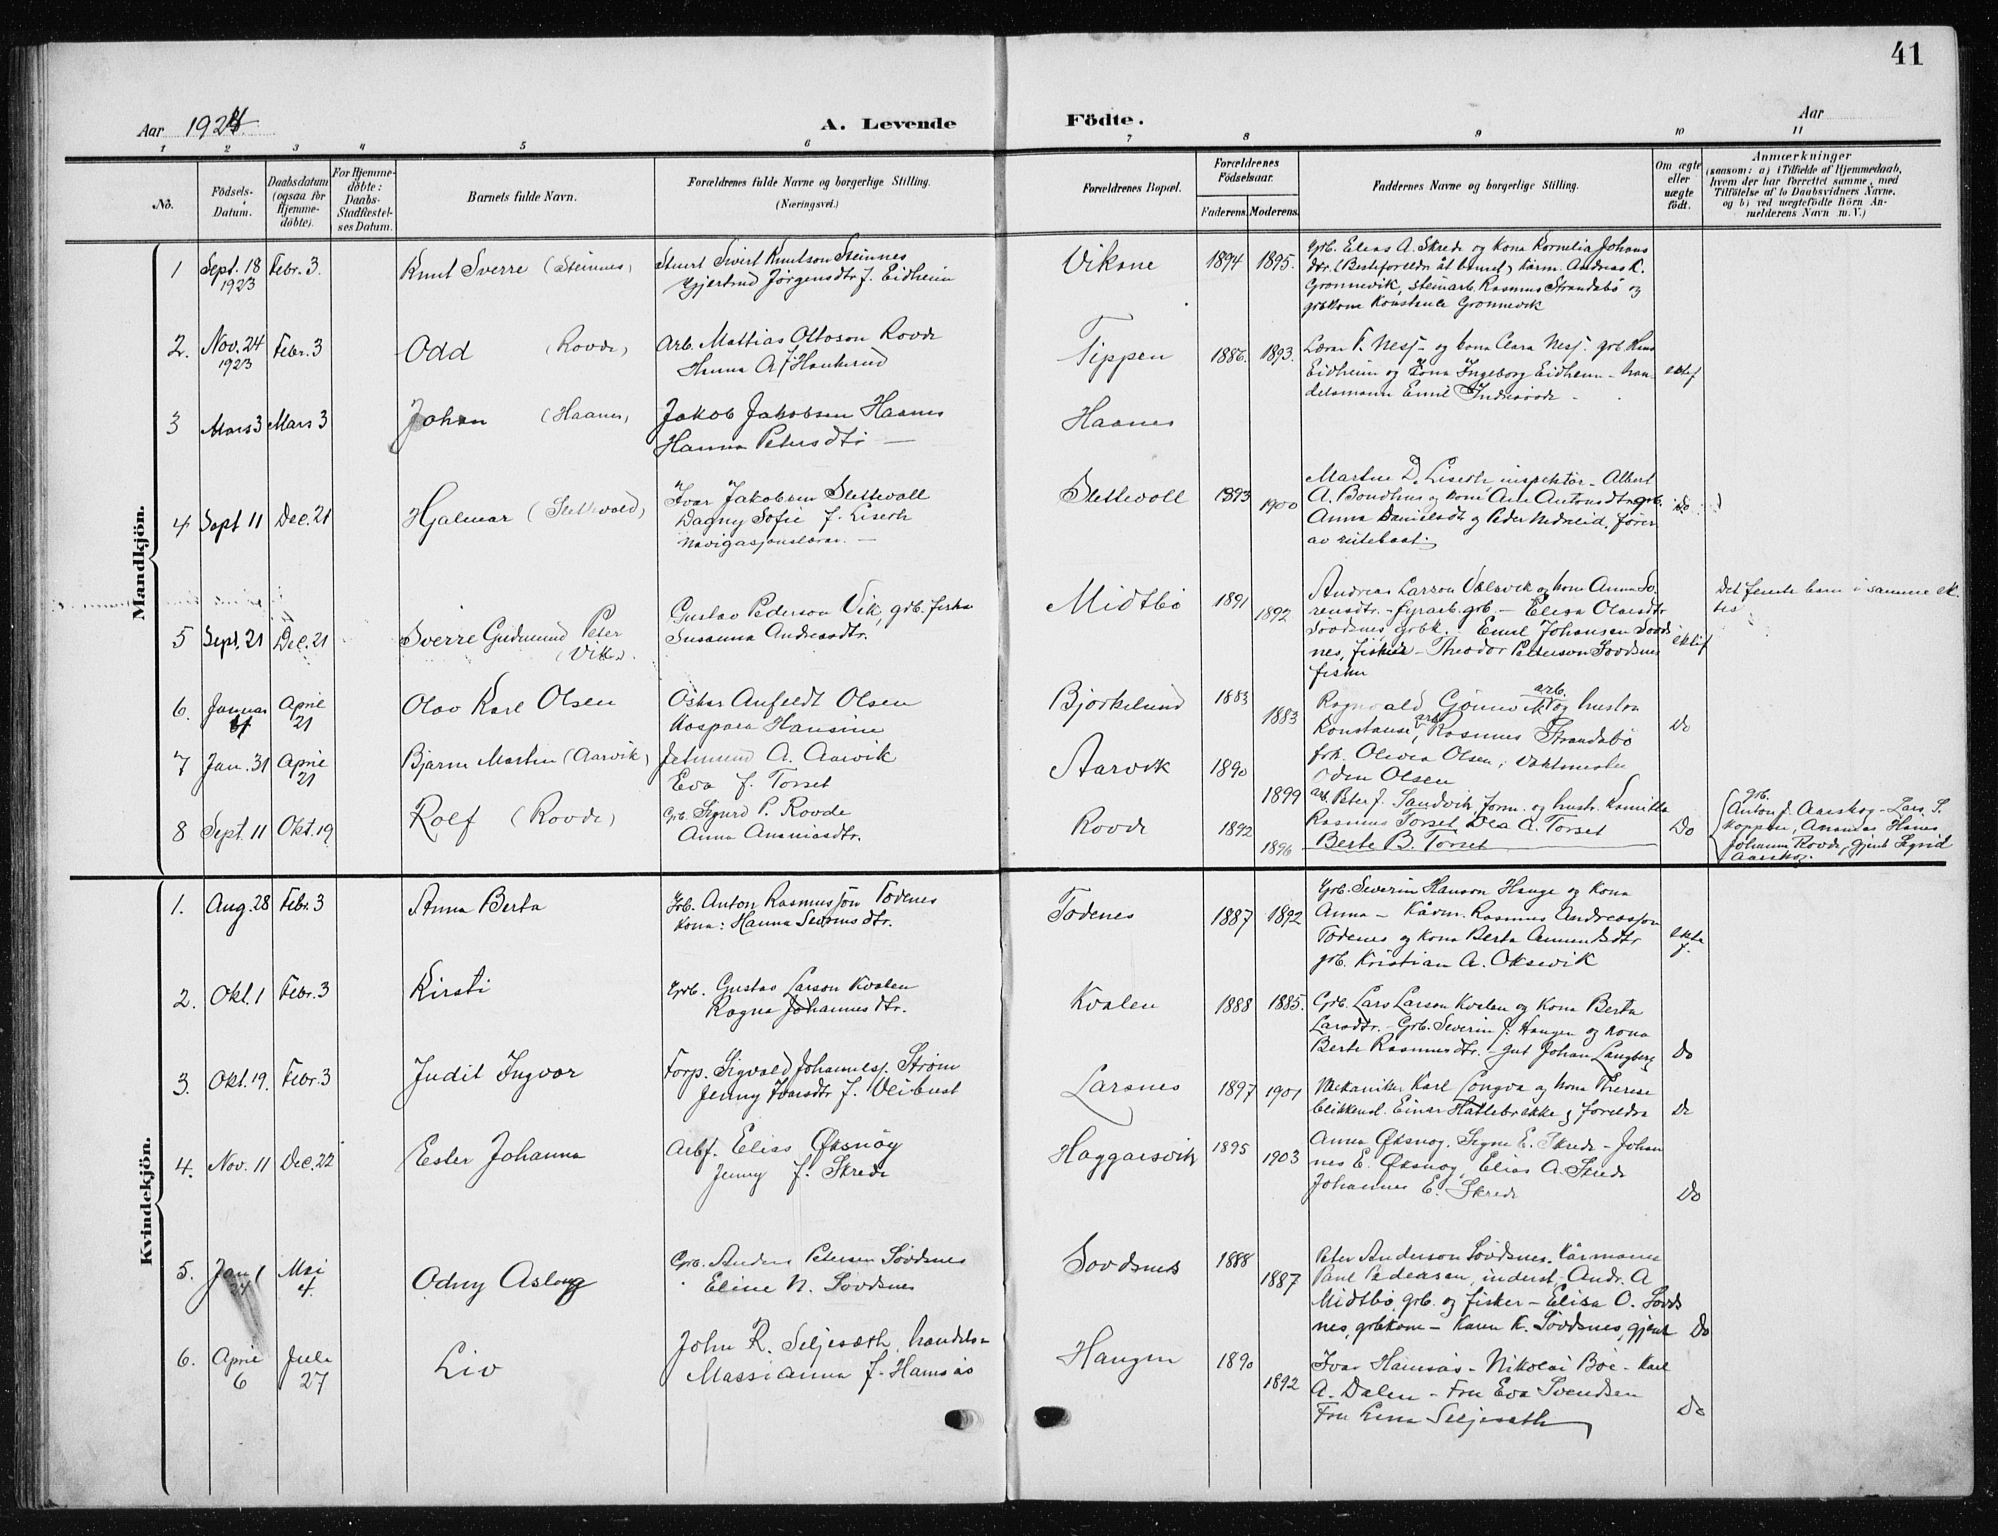 41
Aar 1924
A. Levende Födte.
Aar
1 2 3 4 5 6 7 8 9 10 11
No.
Födsels-Datum.
Daabsdatum (ogsaa for Hjemme-döbte).
For Hjemme-döbte: Daabs-Stadfæstel-ses Datum.
Barnets fulde Navn.
Forældrenes fulde Navne og borgerlige Stilling. (Næringsvei.)
Forældrenes Bopæl.
Forældrenes Födselsaar.
Faderens. Moderens.
Faddernes Navne og borgerlige Stilling.
Om ægte eller uægte födt.
Anmærkninger
(saasom: a) i Tilfælde af Hjemmedaab, hvem der har forrettet samme, med Tilföielse af to Daabsvidners Navne, og b) ved uægtefödte Börn An-melderens Navn m. V.)
Mandkjön.
1 Sept. 18 1923 Febr. 3. Knut Sverre (Steinnes)
Stuert Sivert Knutson Steinnes
Gjertrud Jørgensdtr f. Eidheim
Vikane 1894 1895.
Grb. Elias A. Skrede og kona Kornelia Johans
dtr. (Besteforeldre åt barnet) kårm. Andreas K.
Grønnevik, steinarb. Rasmus Strandabö og
grbkone Konstanse Grønnevik
2. Nov. 24 1923 Febr. 3 Odd (Rovde)
Arb. Mattias Ottoson Rovde
Hanna A. f. Haukerud
Tippen 1886. 1893.
Lærar T. Nesj- og kona Clara Nesj. grb. Hans
Eidheim og kona Ingeborg Eidheim - han-
delsmann Emil Indresovde -
ektef
3 Mars 3 Mars 3 Johan (Haanes)
Jakob Jakobsen Haanes
Hanna Petersdtr —
Haanes
4 Sept 11 Dec. 21 Hjalmar (Slettevold)
Ivar Jakobsen Slettevoll
Dagny Sofie f. Liseth
Navigasjonslærar. —
Slettevoll 1893 1900
Martin D. Liseth inspektør - Albert
A. Bondhus og kona Ane Antonsdtr grb.
Anna Danielsdt og Peder Nedreleid, fører
av rutebaat.
Do
5 Sept. 21 Dec. 21 Sverre Gudmund Peter (Vik).
Gustav Pederson Vik, grb. fisker
Susanna Andreasdtr.
Midtbö 1891 1892
Andreas Larson Vaksvik og kona Anna So-
rensdtr. - fyrarb. grb. - Elisa Olavsdtr
Sovdsnes grbk. - Emil Johansen Sovds
nes, fisker - Theodor Pederson Sovdsnes
fisker
ektef
Det femte barn i samme ek.
tes
6. Januar Aprie 21 Olav Karl Olsen
Oskar Anfeldt Olsen
Kaspara Hansine
Bjørkelund 1883 1883
Ragnvald Grønnevik arb. og hustru
Konstanse, arb. Rasmus Strandabö
frk. Olevia Olsen, Vaktmester
Odin Olsen
Do
7 Jan. 31 Aprie 21 Bjarne Martin (Aarvik)
Jetmund A. Aarvik
Eva f. Torset
Aarvik 1890 1899
arb. Peter J. Sandvik form. og hustr. Kamilla
Rasmus Torset Dea A. Torset
Berte B. Torset
Do
8 Sept. 11 Okt. 19 Rolf (Rovde)
Grb. Sigurd P. Rovde
Anna Ananiasdtr.
Rovde 1892 1896
grb.
Anton J. Aarskog - Lars S.
Koppen, Ananias Hanes
Johanna Rovde, gjent Sigrid
Aarskog.
Kvindekjön.
1. Aug. 28 Febr. 3 Anna Berta
Grb. Anton Rasmussøn Todenes
Kona: Hanna Severinsdtr.
Todenes 1887 1892
Grb. Severin Hanson Hauge og kona
Anna - Kårm. Rasmus Andreassøn
Todenes og kona Berta Amundsdtr
grb. Kristian A. Oksavik
ekte f.
2. Okt. 1 Febr. 3 Kirsti
Grb. Gustav Larson Kvalen
Ragna Johannesdtr.
Kvalen 1888 1885.
Grb. Lars Larson Kvalen og kona Berta
Larsdtr. - Grb. Severin J. Haugen og kona
Berte Rasmusdtr. - gut Johan Langberg
Do
3. Okt. 19. Febr. 3 Judit Ingvor
Forp. Sigvald Johannesj. Strøm
Jenny Ivarsdtr f. Veibust
Larsnes 1897 1901
Mekaniker Karl Longva og kona Therese
blikkensl. Einar Hattebrekke og foreldra
Do
4. Nov. 11 Dec. 22 Ester Johanna
Arbf. Elias Øksnøy
Jenny f. Skrede
Haggarsvik 1895 1903
Anna Øksnøy. Signe E. Skrede - Johan
nes E. Øksnøy, Elias A. Skrede
Johannes E. Skrede
Do
5. Jan 1 24 Mai 4. Odny Aslaug
Grb. Anders Petersen Sovdsnes
Eline N. Sovdsnes
Sovdsnes 1888 1887
Peter Anderson Sovdsnes. Kårmann
Paul Pedersen, inderst, Andr. A
Midtbö, grb. og fisker - Elisa O. Sovds
nes, grbkone - Karen K. Sovdsnes, gjent
Do
6. Aprie 6 Jule 27 Liv
John R. Seljesæth, handels-
Massi Anna f. Hamsås
Haugen 1890 1892
Ivar Hamsås - Nikolai Böe - Karl
A. Dalen - Fru Eva Svendsen
Fru Lina Seljesæth
Do